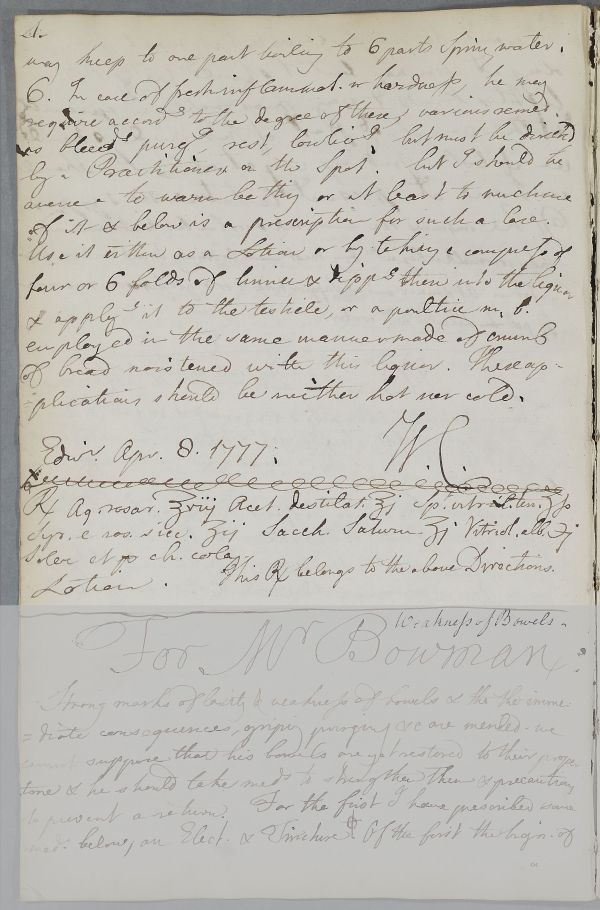 4.
may keep to one part boiling to 6 parts Spring water.
6. In case of fresh inflammat. or hardness, he may
require accordg to the degree of these, various remed.
as bleedg purgg rest, but must be directed
by a Practitioner on the Spot. but I should be
averse to warm bathing or at least to much use
of it & below is a prescription for such a case.
Use it either as a Lotion or by taking a compress of
four or 6 folds of linnen & dippg them into the liquor
& applyg it to the testicle, or a poultice m. b.
employed in the same manner made of crumb
of bread moistened with this liquor. These ap-
plications should be neither hot nor cold.
Edinr. Apr. 8. 1777. W. C.
Rx Aq. rosar. ʒvij Acet. destillat. ʒj Sp. vitriol. ten. ʒss
Syr. e ros. sicc. ʒij Sacch. Saturn. ʒj Vitriol. alb. ʒj
Solv. et p ch. cola.
Lotion. This Rx belongs to the above Directions.
Weakness of Bowels.
For Mr Bowman.
Strong marks of laxity & weakness of bowels & tho the imme-
=diate consequences, griping purging &c are mended we
cannot suppose that his bowels are yet restored to their proper
tone & he should take meds to strengthen them & precautions
to prevent a return. For the first I have prescribed some
meds. below, an Elect. & Tincture. Of the first the bign. of